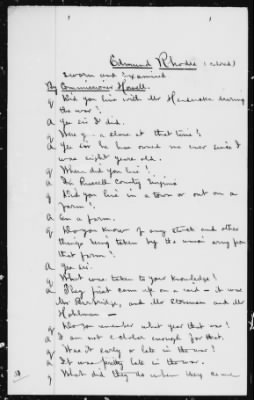 Edmund Rhodes (Colored)
Sworn and Examined
By Commissioner Howell.
Q Did you live with Mr during
the war?
A Yes Sir I did.
Q Were you a slave at that time?
A Yes Sir he has owned me ever since I
was eight years old.
Q Where did you live?
A In Russell County Virginia
Q Did you live in a town or out on a
farm?
A On a farm.
Q Do you know of any stock and other
things being taken by the union army from
that farm?
A Yes Sir.
Q What was taken to your knowledge?
A They first came up on a raid - it was
Mr Burbridge, and Mr Stoneman and Mr
Q Do you remember what year that was?
A I am not a scholar enough for that.
Q Was it early or late in the war?
A It was pretty late in the war.
Q What did they do when they came